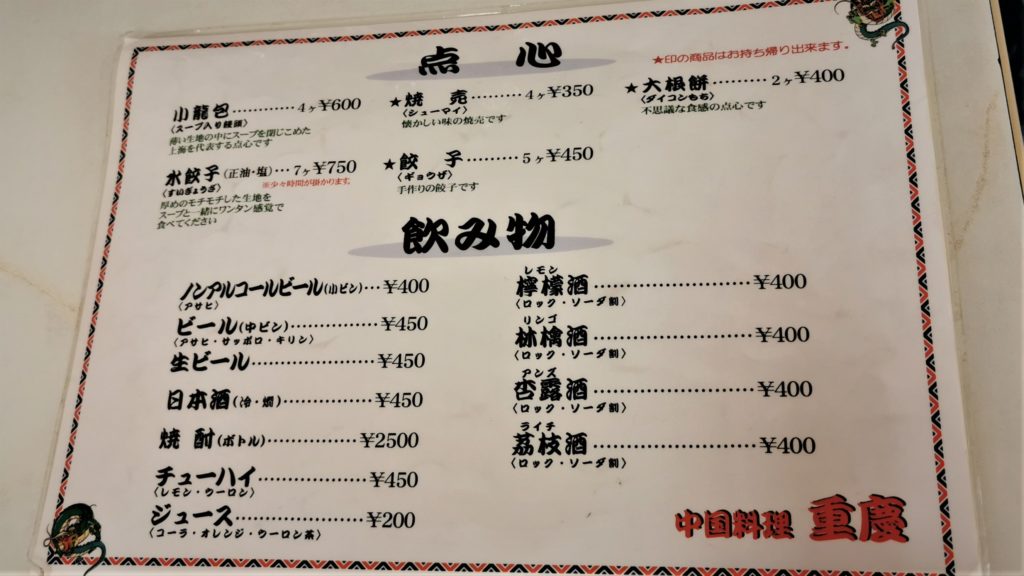 点 心
★印の商品はお持ち帰り出来ます。
小龍包…………4ヶ¥600
〈スープ入り饅頭〉
薄い生地の中にスープを閉じこめた
上海を代表する点心です
水餃子(正油・塩)…7ヶ¥750
〈すいぎょうざ〉
※少々時間が掛かります。
厚めのモチモチした生地を
スープと一緒にワンタン感覚で
食べてください
★焼 売…………4ヶ¥350
〈シューマイ〉
懐かしい味の焼売です
★餃 子………5ヶ¥450
〈ギョウザ〉
手作りの餃子です
★大根餅………2ヶ¥400
〈ダイコンもち〉
不思議な食感の点心です
飲み物
ノンアルコールビール(小ビン)…¥400
〈アサヒ〉
ビール(中ビン)……………¥450
〈アサヒ・サッポロ・キリン〉
生ビール…………………¥450
日本酒(冷・燗)……………¥450
焼 酎(ボトル)……………¥2500
チューハイ………………¥450
〈レモン・ウーロン〉
ジュース…………………¥200
〈コーラ・オレンジ・ウーロン茶〉
レモン
檸檬酒………………………¥400
〈ロック・ソーダ割〉
リンゴ
林檎酒………………………¥400
〈ロック・ソーダ割〉
アンズ
杏露酒………………………¥400
〈ロック・ソーダ割〉
ライチ
茘枝酒………………………¥400
〈ロック・ソーダ割〉
中国料理 重慶